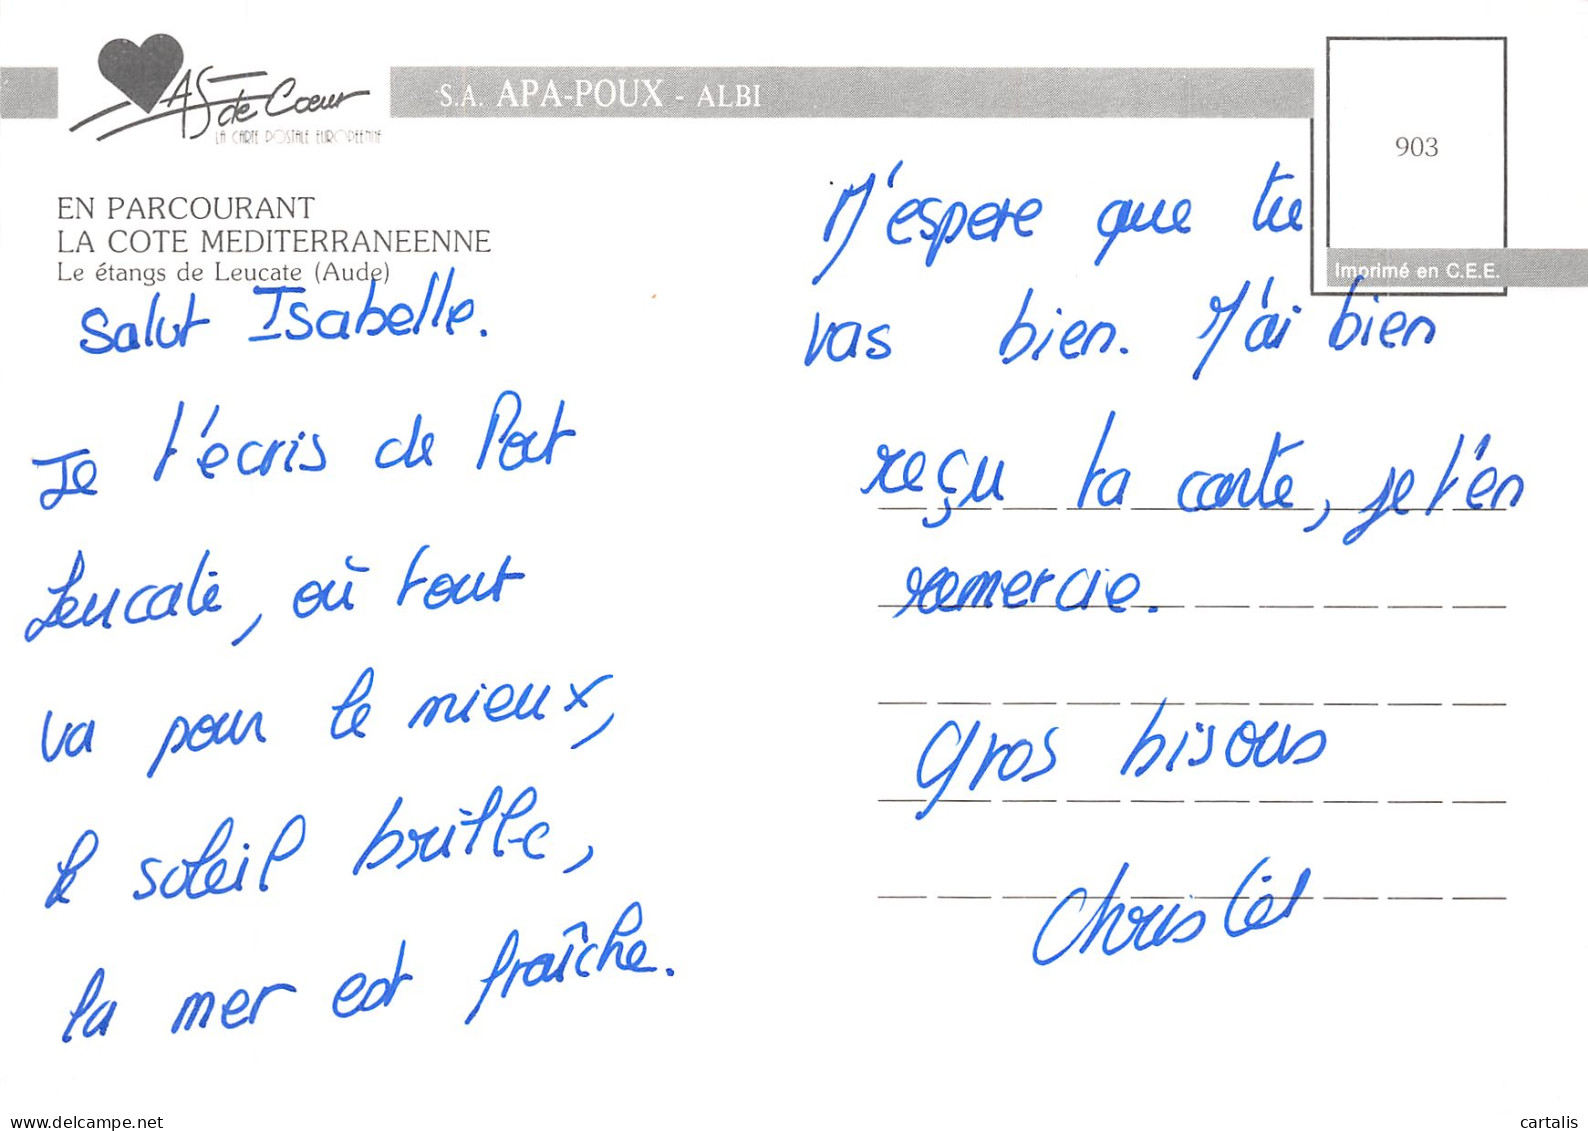 AS de Coeur
LA CARTE POSTALE EUROPEENNE
S.A. APA-POUX - ALBI
903
Imprimé en C.E.E.
EN PARCOURANT
LA COTE MEDITERRANEENNE
Le étangs de Leucate (Aude)
Salut Isabelle.
Je t'écris de Port
Leucate, où tout
va pour le mieux,
le soleil brille,
la mer est fraîche.
J'espere que tu
vas bien. J'ai bien
reçu ta carte, je t'en
remercie.
Gros bisous
Christel
www.delcampe.net
cartalis